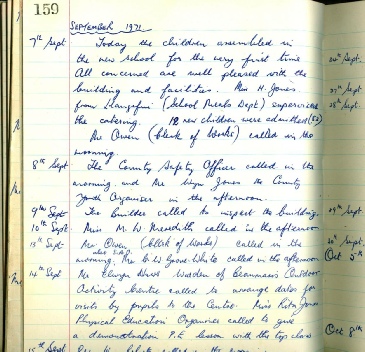 159
SEPTEMBER 1971
7th Sept Today the children assembled in
the new school for the very first time.
All concerned are well pleased with the
building and facilities. Miss H. Jones
from Llangefni (School Meals Dept) supervised
the catering. 12 new children were admitted (52)
Mr Owen (Clerk of Works) called in the
morning
8th Sept The County Safety Officer called in the
morning and Mr Wyn Jones the County
Youth Organiser in the afternoon.
9th Sept The builder called to inspect the building.
10th Sept Miss M. W. Meredith called in the afternoon
13th Sept Mr. Owen (Clerk of Works) called in the
morning. Mr G W Gove White called in the afternoon
14th Sept Mr Elwyn Warden of Outdoor
Activity Centre called to arrange dates for
visits by pupils to the Centre. Miss Rita Jones
Physical Education Organiser called to give
a demonstration P.E lesson with the top class
15th Sept
24th Sept
27th Sept
28th Sept
29th Sept
30th Sept
Oct 5th
Oct 8th